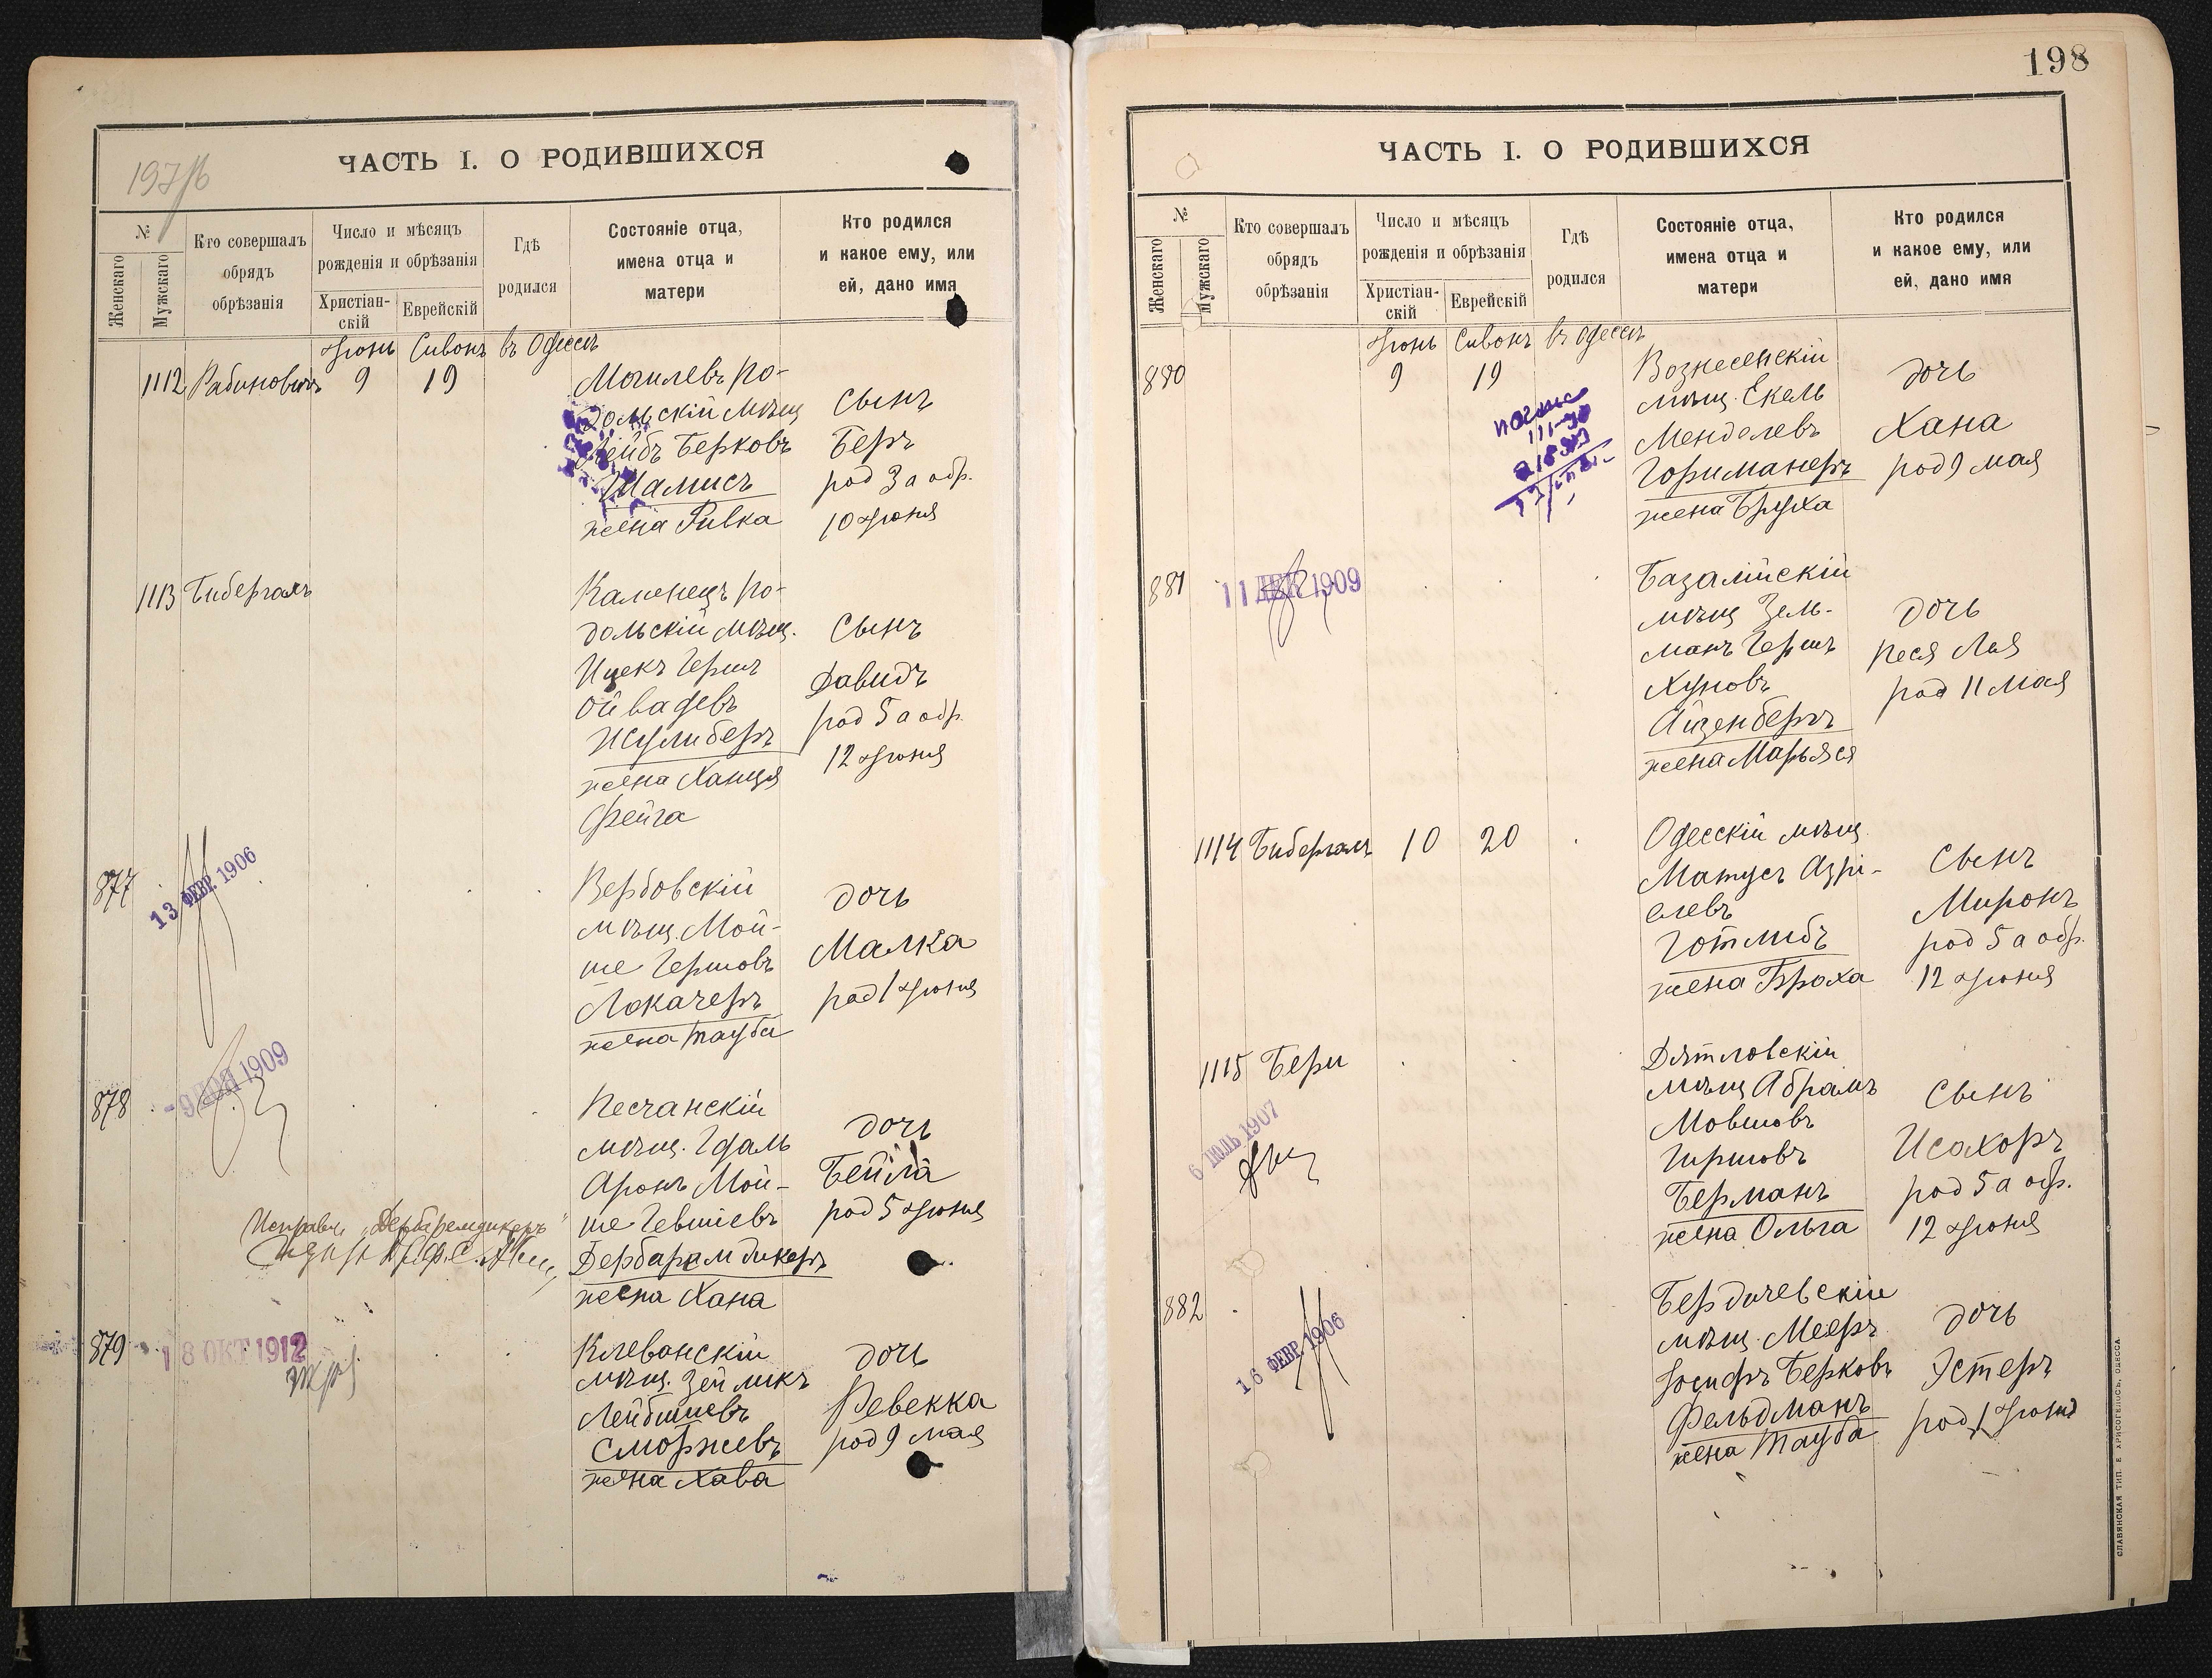 197/б
ЧАСТЬ I. О РОДИВШИХСЯ
№
Женскаго
Мужскаго
Кто совершалъ
обрядъ
обрѣзанія
Число и мѣсяцъ
рожденія и обрѣзанія
Христіан-
скій
Еврейскій
Гдѣ
родился
Состояніе отца,
имена отца и
матери
Кто родился
и какое ему, или
ей, дано имя
Іюнь Сивонъ въ Одессѣ
1112 Рабиновичъ 9 19
Могилевъ по-
дольскій мѣщ
Лейбъ Берковъ
Шамисъ
жена Ривка
Сынъ
Беръ
род 3 а обр.
10 Іюня
1113 Бибергалъ
Каменецъ по-
дольскій мѣщ.
Ицекъ Гершъ
жена Ханця
Фейга
Сынъ
Давидъ
род 5 а обр.
12 Іюня
877
13 ФЕВР. 1906
Вербовскій
мѣщ. Мой-
ше Гершовъ
Локачеръ
жена Тауба
дочь
Малка
род 1 Іюня
878
1909
Песчанскій
мѣщ. Гдаль
Аронъ Мой-
ше Гевшіевъ
Дербарамдикеръ
жена Хана
дочь
Бейла
род 5 Іюня
879
18 ОКТ 1912
Клеванскій
мѣщ. Зейликъ
Лейбишевъ
Сморжевъ
жена Хава
дочь
Ревекка
род 9 мая
198
ЧАСТЬ I. О РОДИВШИХСЯ
№
Женскаго
Мужскаго
Кто совершалъ
обрядъ
обрѣзанія
Число и мѣсяцъ
рожденія и обрѣзанія
Христіан-
скій
Еврейскій
Гдѣ
родился
Состояніе отца,
имена отца и
матери
Кто родился
и какое ему, или
ей, дано имя
Іюнь Сивонъ въ Одессѣ
880 9 19
Вознесенскій
мѣщ. Екель
Менделевъ
Гориманеръ
жена Бруха
дочь
Хана
род 9 мая
881
11 ДЕК 1909
Базалійскій
мѣщ Зель-
манъ Гершъ
Хуновъ
Айзенбергъ
жена Марьяся
дочь
Песя Лея
род 11 мая
1114 Бибергалъ 10 20
Одесскій мѣщ
Матусъ Азрі-
елевъ
Готлибъ
жена Броха
Сынъ
Миронъ
род 5 а обр.
12 Іюня
1115 Бери
6 ІЮЛЬ 1907
Дятловскій
мѣщ Абрамъ
Мовшовъ
Гиршовъ
Берманъ
жена Ольга
Сынъ
Исахоръ
род 5 а обр.
12 Іюня
882
16 ФЕВР. 1906
Бердичевскій
мѣщ. Мееръ
Іосифъ Берковъ
Фельдманъ
жена Тауба
дочь
Эстеръ
род 1 Іюня
СЛАВЯНСКАЯ ТИП. Е. ХРИСОГЕЛОСЪ, ОДЕССА